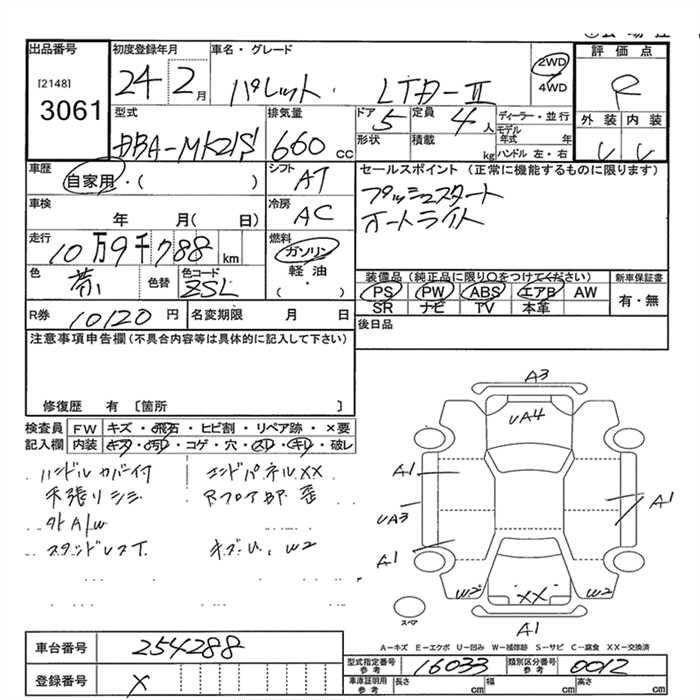 出品番号 初度登録年月 車名・グレード 評価点
[2148]
3061
24 2月 パレット LTD-Ⅱ 2WD 4WD R
型式 排気量 ドア 定員 ディーラー・並行 外装 内装
DBA-MK21S 660cc 5 4人 モデル年式 年
形状 積載 kg ハンドル 左・右
車歴 シフト セールスポイント (正常に機能するものに限ります)
自家用・( ) AT プッシュスタート
車検 冷房 オートライト
年 月( 日) AC
走行 燃料
10万9千788km ガソリン
色 色替 色コード 軽油
ZSL ( )
装備品(純正品に限り○をつけてください) 新車保証書
PS PW ABS エアB AW 有・無
SR ナビ TV 本革
R券 10120円 名変期限 月 日 後日品
注意事項申告欄(不具合内容等は具体的に記入して下さい)
修復歴 有 〔箇所 〕
検査員 FW キズ・飛石・ヒビ割・リペア跡・×要
記入欄 内装 キズ・汚れ・コゲ・穴・スレ・キレ・破レ
ハンドルカバー付 エンドパネルXX
天張りシミ Rフロア部 歪
外A/W
スタッドレスT キズU、W2
A3
UA4
A1
A1
UA3
A1
W2 XX W2
スペア
A1
A-キズ E-エクボ U-凹み W-補修跡 S-サビ C-腐食 XX-交換済
車台番号 254288
型式指定番号 参考 16033 類別区分番号 参考 0012
登録番号 X
車庫証明用 参考 長さ cm 幅 cm 高さ cm